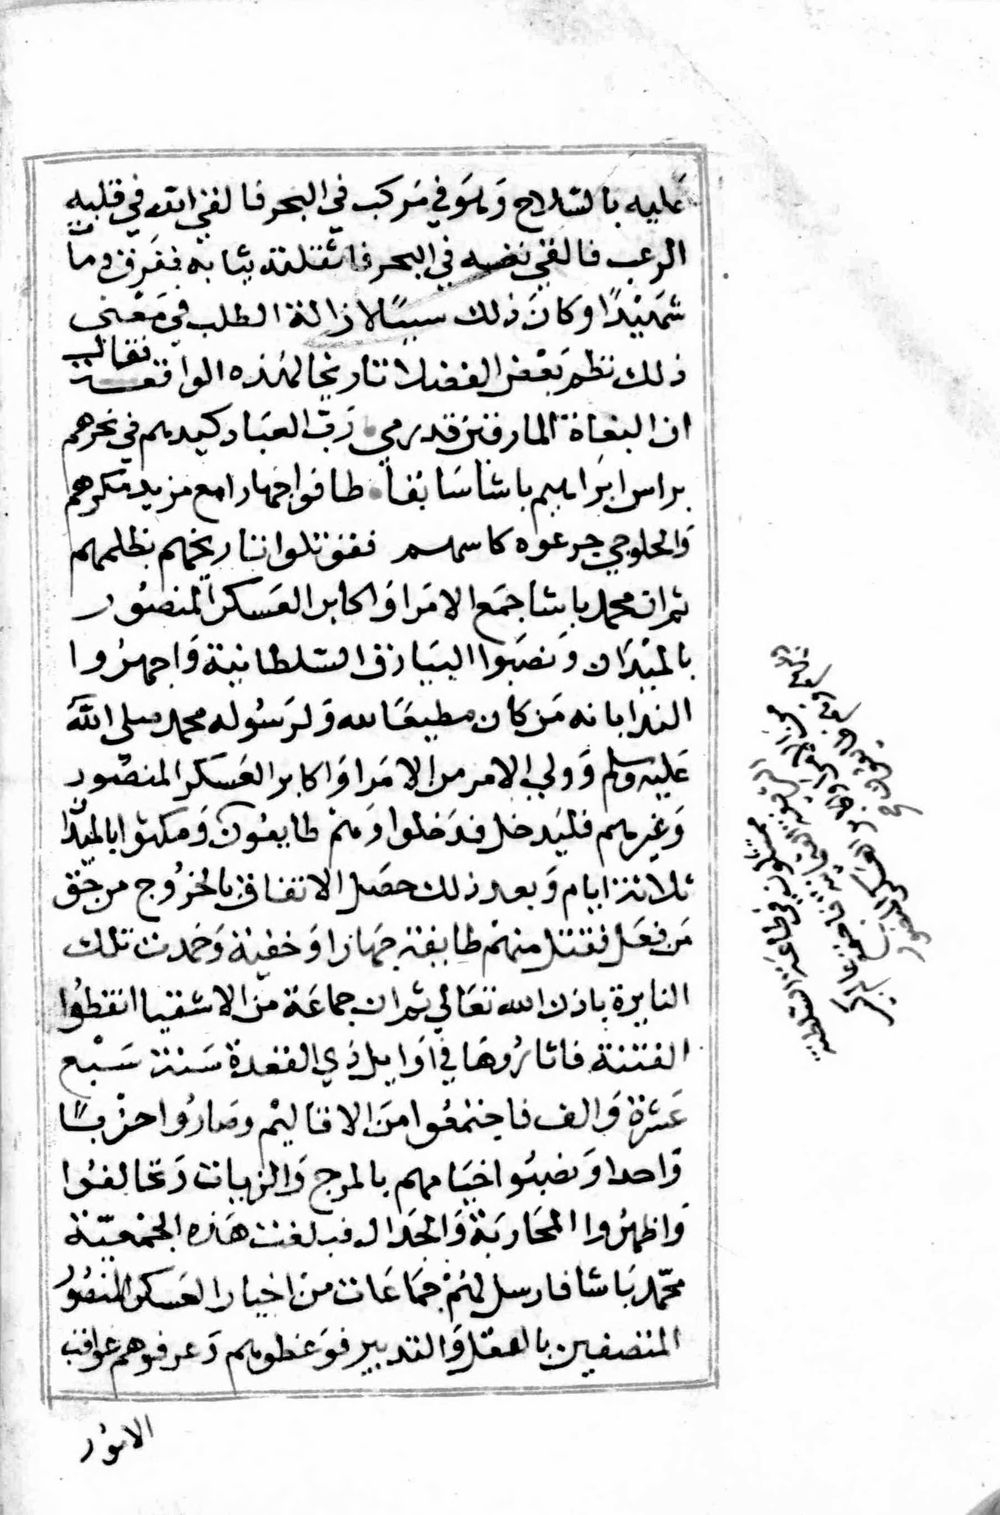 عليه بالسلاح وهو في مركب في البحر فالقي الله في قلبه
الرعب فالقي نفسه في البحر فاثقلته ثيابه فغرق ومات
شهيدًا وكان ذلك سببًا لازالة الطلب في معنى
ذلك نظم بعض الفضلا تاريخا لهذه الواقعة فقال
ان البغاة المارقين قد رمي رب العباد كيدهم في نحرهم
براس ابراهيم باشا سابقا طافوا جهارا مع مزيد مكرهم
والحلوجي جرعوه كاسهم فقوتلوا تاريخهم بظلمهم
ثم ان محمد باشا جمع الامرا واكابر العسكر المنصور
بالميدان ونصبوا البيارق السلطانية واجهروا
الندا بانه من كان مطيعا لله ولرسوله محمد صلى الله
عليه وسلم وولي الامر من الامرا واكابر العسكر المنصور
وغيرهم فليدخل فدخلوا وهم طايعون ومكثوا بالميدا
ثلاثة ايام وبعد ذلك حصل الاتفاق بالخروج من حق
من فعل فقتل منهم طايفة جهارا وخفية وخمدت تلك
النايرة باذن الله تعالي ثم ان جماعة من الاشقيا انقطوا
الفتنة فاثاروها في اوايل ذي القعدة سنة سبع
عشرة والف فاجتمعوا من الاقاليم وصاروا حزبًا
واحدا ونصبوا خيامهم بالمرج والزيات وتحالفوا
واظهروا المحاربة والجدال فبلغت هذه الجمعية
محمد باشا فارسل لهم جماعات من اخيار العسكر المنصور
المتصفين بالعقل والتدبير فوعظوهم وعرفوهم عواقب
الامور